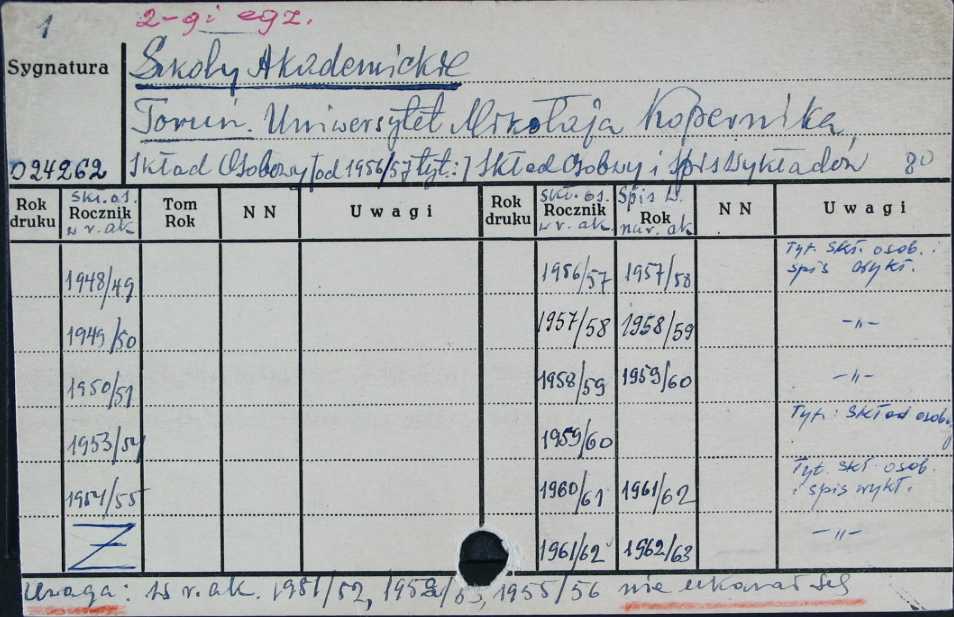 1 2-gi egz.
Sygnatura Szkoły Akademickie
Toruń. Uniwersytet Mikołaja Kopernika.
024262 Skład Osobowy [od 1956/57 tyt.:] Skład Osobowy i Spis Wykładów 8⁰
Rok druku Skł. os. Rocznik w r. ak. Tom Rok NN Uwagi Rok druku Skł. os. Rocznik w r. ak. Spis W. na r. ak. Rok NN Uwagi
1948/49 1956/57 1957/58 Tyt. Skł. osob. i spis wykł.
1949/50 1957/58 1958/59 -"-
1950/51 1958/59 1959/60 -"-
1953/54 1959/60 Tyt: Skład osobowy
1954/55 1960/61 1961/62 Tyt. Skł. osob. i spis wykł.
Z 1961/62 1962/63 -"-
Uwaga: W r. ak. 1951/52, 1952/53, 1955/56 nie ukazał się